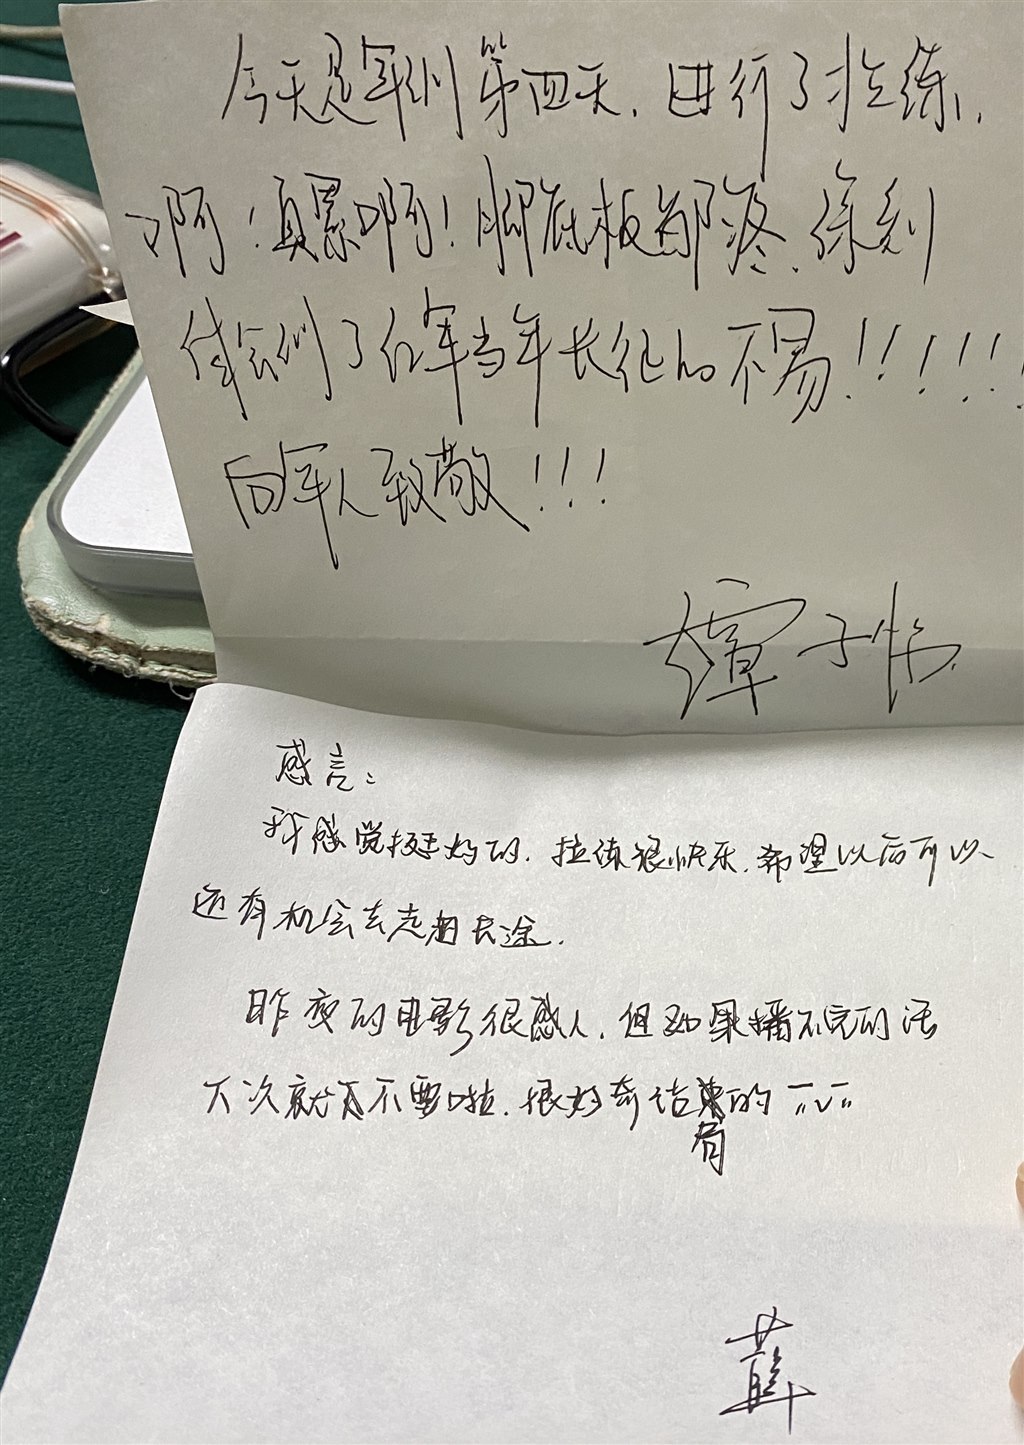 今天是军训第四天，进行了拉练，
啊！真累啊！脚底板都疼，深刻
体会到了红军当年长征的不易！！！！！
向军人致敬！！！
谭子怡
感言：
我感觉挺好的，拉练很快乐，希望以后可以
还有机会去走趟长途．
昨夜的电影很感人，但如果播不完的话
下次就不要啦，很好奇结局的
薛